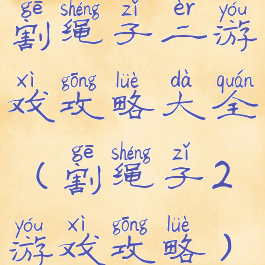 gē shéng zǐ èr yóu
割绳子二游
xì gōng lüè dà quán
戏攻略大全
gē shéng zǐ
(割绳子2
yóu xì gōng lüè
游戏攻略)